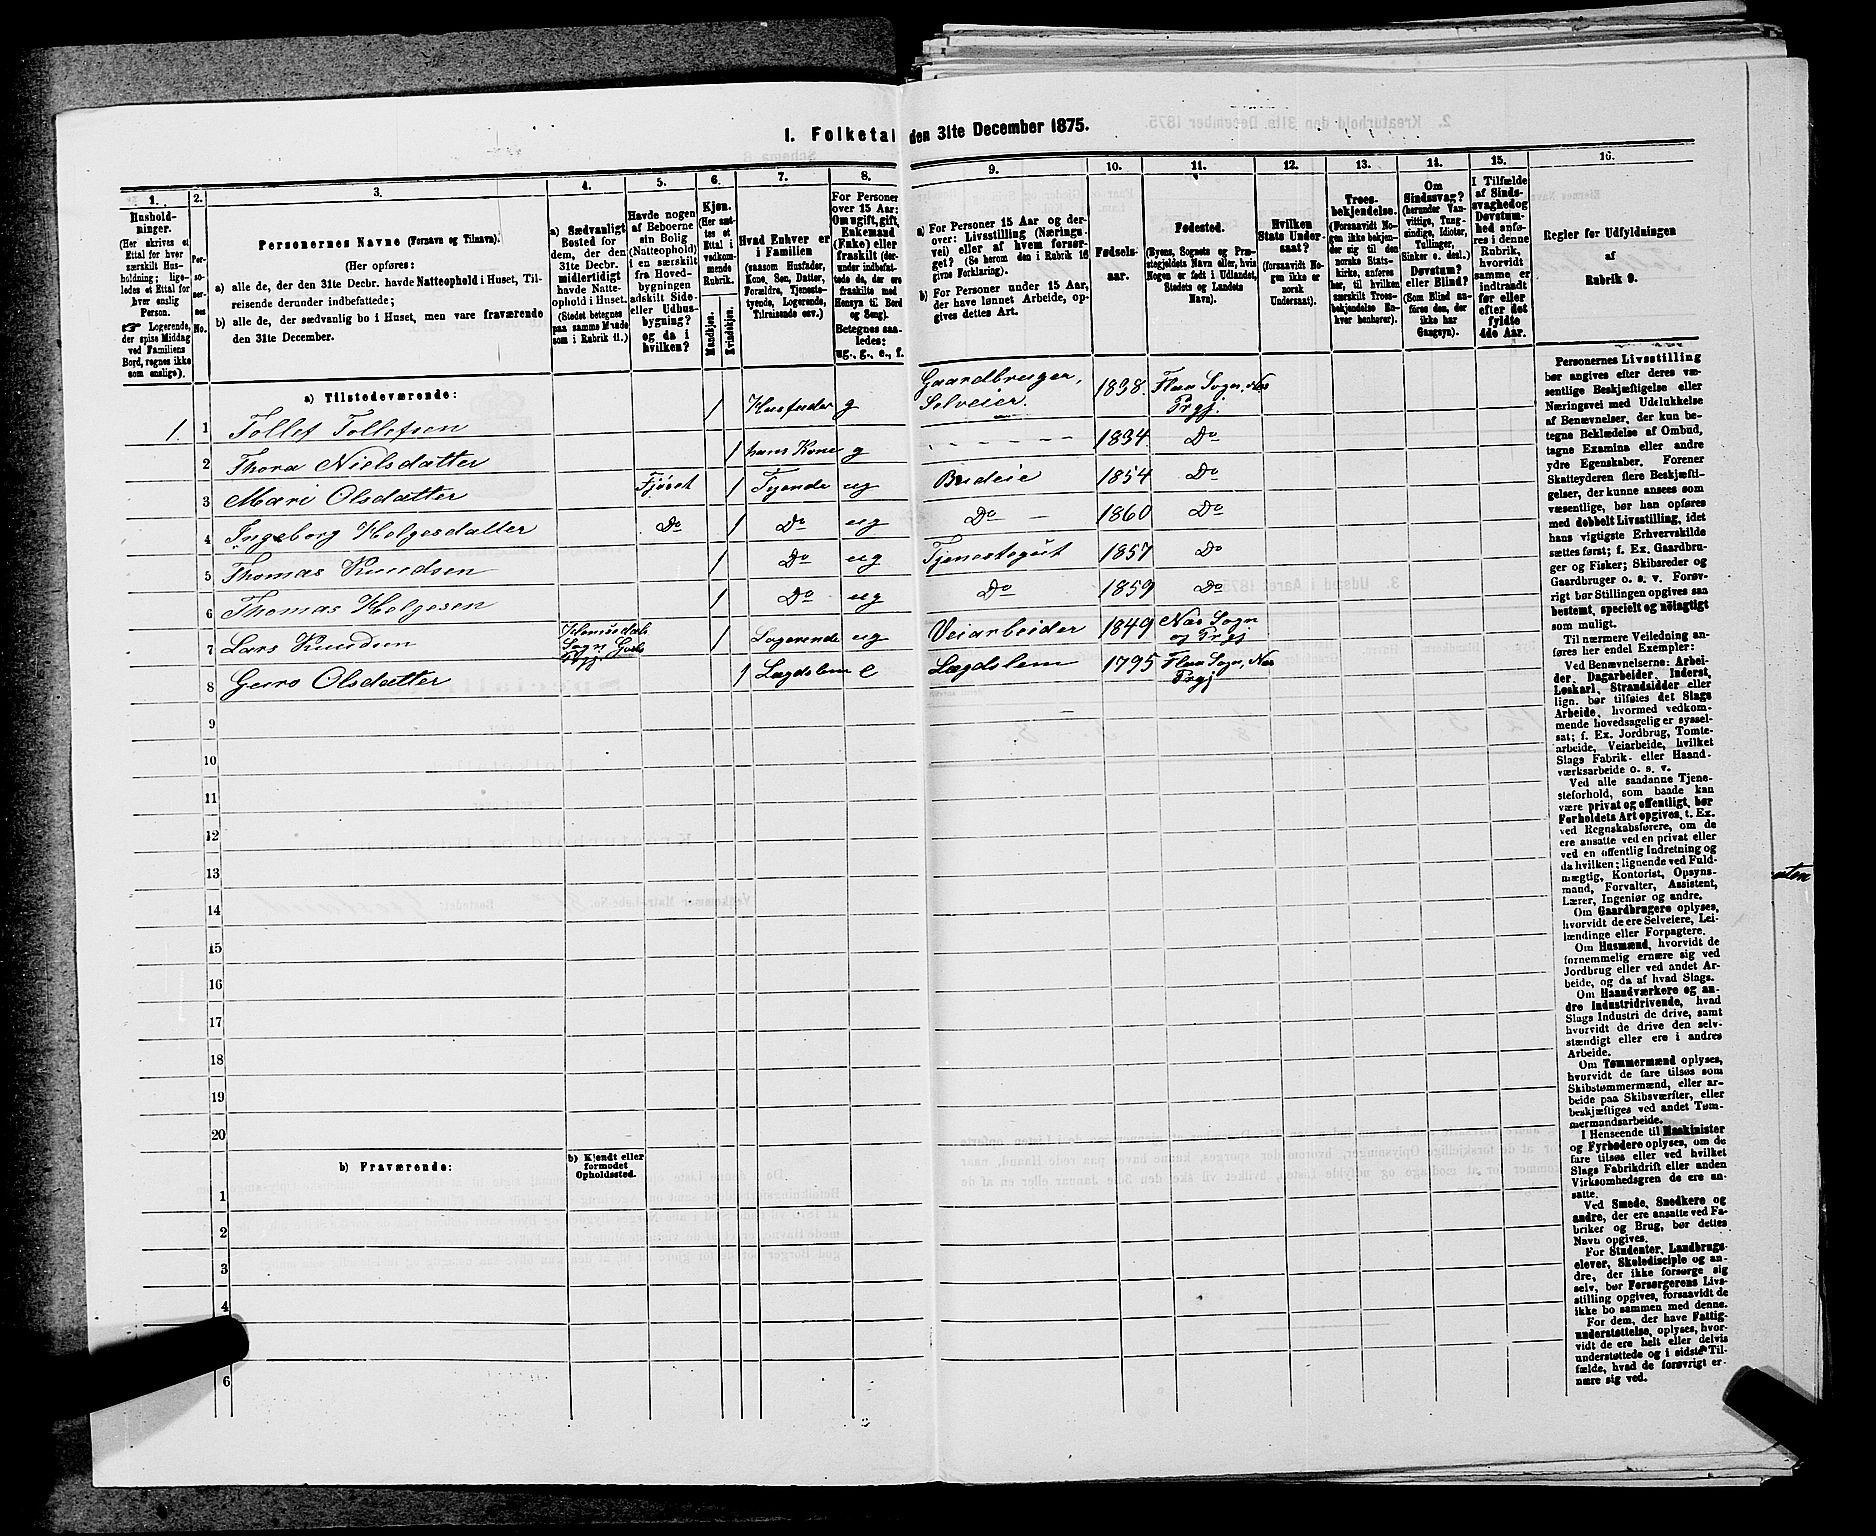 I. Folketal den 31te December 1875.
1.
Husholdninger.
(Her skrives et Ettal for hver særskilt Husholdning; ligeledes et Ettal for hver enslig Person.
☞ Logerende, der spise Middag ved Familiens Bord, regnes ikke som enslige).
2.
Personernes No.
3.
Personernes Navne (Fornavn og Tilnavn).
(Her opføres:
a) alle de, der den 31te Decbr. havde Natteophold i Huset, Tilreisende derunder indbefattede;
b) alle de, der sædvanlig bo i Huset, men vare fraværende den 31te December.
4.
a) Sædvanligt Bosted for dem, der den 31te Decbr. midlertidigt havde Natteophold i Huset.
(Stedet betegnes paa samme Maade som i Rubrik 11.)
5.
Havde nogen af Beboerne sin Bolig (Natteophold) i en særskilt fra Hovedbygningen adskilt Side- eller Udhusbygning? og da i hvilken?
6.
Kjøn.
(Her sættes et Ettal i vedkommende Rubrik.
Mandkjøn.
Kvindekjøn.
7.
Hvad Enhver er i Familien
(saasom Husfader, Kone, Søn, Datter, Forældre, Tjenestetyende, Logerende, Tilreisende osv.)
8.
For Personer over 15 Aar: Om ugift, gift, Enkemand (Enke) eller fraskilt (derunder indbefattede de, der ere fraskilte med Hensyn til Bord og Seng).
Betegnes saaledes: ug., g., e., f.
9.
a) For Personer 15 Aar og derover: Livsstilling (Næringsvei) eller af hvem forsørget? (Se herom den i Rubrik 16 givne Forklaring).
b) For Personer under 15 Aar, der have lønnet Arbeide, opgives dettes Art.
10.
Fødselsaar.
11.
Fødested.
(Byens, Sognets og Præstegjeldets Navn eller, hvis Nogen er født i Udlandet, Stedets og Landets Navn).
12.
Hvilken Stats Undersaat?
(forsaavidt Nogen ikke er norsk Undersaat).
13.
Troesbekjendelse.
(Forsaavidt Nogen ikke bekjender sig til den norske Statskirke, anføres her, til hvilken særskilt Troesbekjendelse Enhver henhører).
14.
Om Sindssvag? (herunder Vanvittige, Tungsindige, Idioter, Tullinger, Sinker o. desl.).
Døvstum? eller Blind? (Som Blind anføres den, der ikke har Gangsyn).
15.
I Tilfælde af Sindssvaghed og Døvstumhed anføres i denne Rubrik, hvorvidt samme er indtraadt før eller efter det fyldte 4de Aar.
16.
Regler for Udfyldningen af Rubrik 9.
a) Tilstedeværende:
1. 1 Tollef Tollefsen 1 Husfader g Gaardbruger, Selveier. 1838. Flaa Sogn, Nes Prgj.
2 Thora Nielsdatter 1 hans Kone g 1834. Do
3 Mari Olsdatter Fjøset 1 Tjende ug Budeie 1854 Do
4 Ingeborg Helgesdatter Do 1 Do ug Do 1860 Do
5 Thomas Knudsen 1 Do ug Tjenestegut 1857 Do
6 Thomas Helgesen 1 Do ug Do 1859 Do
7 Lars Knudsen Sogn Prgj 1 Logerende ug Veiarbeider 1849 Nes Sogn og Prgj
8 Gjero Olsdatter 1 Lægdslem e Lægdslem 1795 Flaa Sogn, Nes Prgj
9
10
11
12
13
14
15
16
17
18
19
20
b) Fraværende:
b) Kjendt eller formodet Opholdssted.
1
2
3
4
6
Personernes Livsstilling
bør angives efter deres væsentlige Beskjæftigelse eller
Næringsvei med Udelukkelse
af Benævnelser, der kun betegne Beklædelse af Ombud,
tagne Examina eller andre
ydre Egenskaber. Forener
Skatteyderen flere Beskjæftigelser, der kunne ansees som
væsentlige, bør han opføres
med dobbelt Livsstilling, idet
hans vigtigste Erhvervskilde
sættes først; f. Ex. Gaardbruger og Fisker; Skibsreder og
Gaardbruger o. s. v. Forøvrigt bør Stillingen opgives saa
bestemt, specielt og nøiagtigt
som muligt.
Til nærmere Veiledning anføres her endel Exempler:
Ved Benævnelserne: Arbeider, Dagarbeider, Inderst,
Løskarl, Strandsidder eller
lign. bør tilføies det Slags
Arbeide, hvormed vedkommende hovedsagelig er sysselsat; f. Ex. Jordbrug, Tomtearbeide, Veiarbeide, hvilket
Slags Fabrik- eller Haandværksarbeide o. s. v.
Ved alle saadanne Tjenesteforhold, som baade kan
være privat og offentligt, bør
Forholdets Art opgives, t. Ex.
ved Regnskabsførere, om de
ere ansatte ved en privat eller
ved en offentlig Indretning og
da hvilken; lignende ved Fuldmægtig, Kontorist, Opsynsmand, Forvalter, Assistent,
Lærer, Ingeniør og andre.
Om Gaardbrugere oplyses,
hvorvidt de ere Selveiere, Leilændinge eller Forpagtere.
Om Husmænd, hvorvidt de
fornemmelig ernære sig ved
Jordbrug eller ved andet Arbeide, og da af hvad Slags.
Om Haandværkere og andre Industridrivende, hvad
Slags Industri de drive, samt
hvorvidt de drive den selvstændigt eller ere i andres
Arbeide.
Om Tømmermænd oplyses,
hvorvidt de fare tilsøs som
Skibstømmermænd, eller arbeide paa Skibsværfter, eller
beskjæftiges ved andet Tømmermandsarbeide.
I Henseende til Maskinister
og Fyrbødere oplyses, om de
fare tilsøs eller ved hvilket
Slags Fabrikdrift eller anden
Virksomhedsgren de ere ansatte.
Ved Smede, Snedkere og
andre, der ere ansatte ved Fabriker og Brug, bør dettes
Navn opgives.
For Studenter, Landbrugselever, Skoledisciple og andre, der ikke forsørge sig
selv, bør Forsørgerens Livsstilling opgives, forsaavidt de
ikke bo sammen med denne.
For dem, der have Fattigunderstøttelse, oplyses, hvorvidt de ere helt eller delvis
understøttede og i sidste Tilfælde, hvad de forøvrigt ernære sig ved.